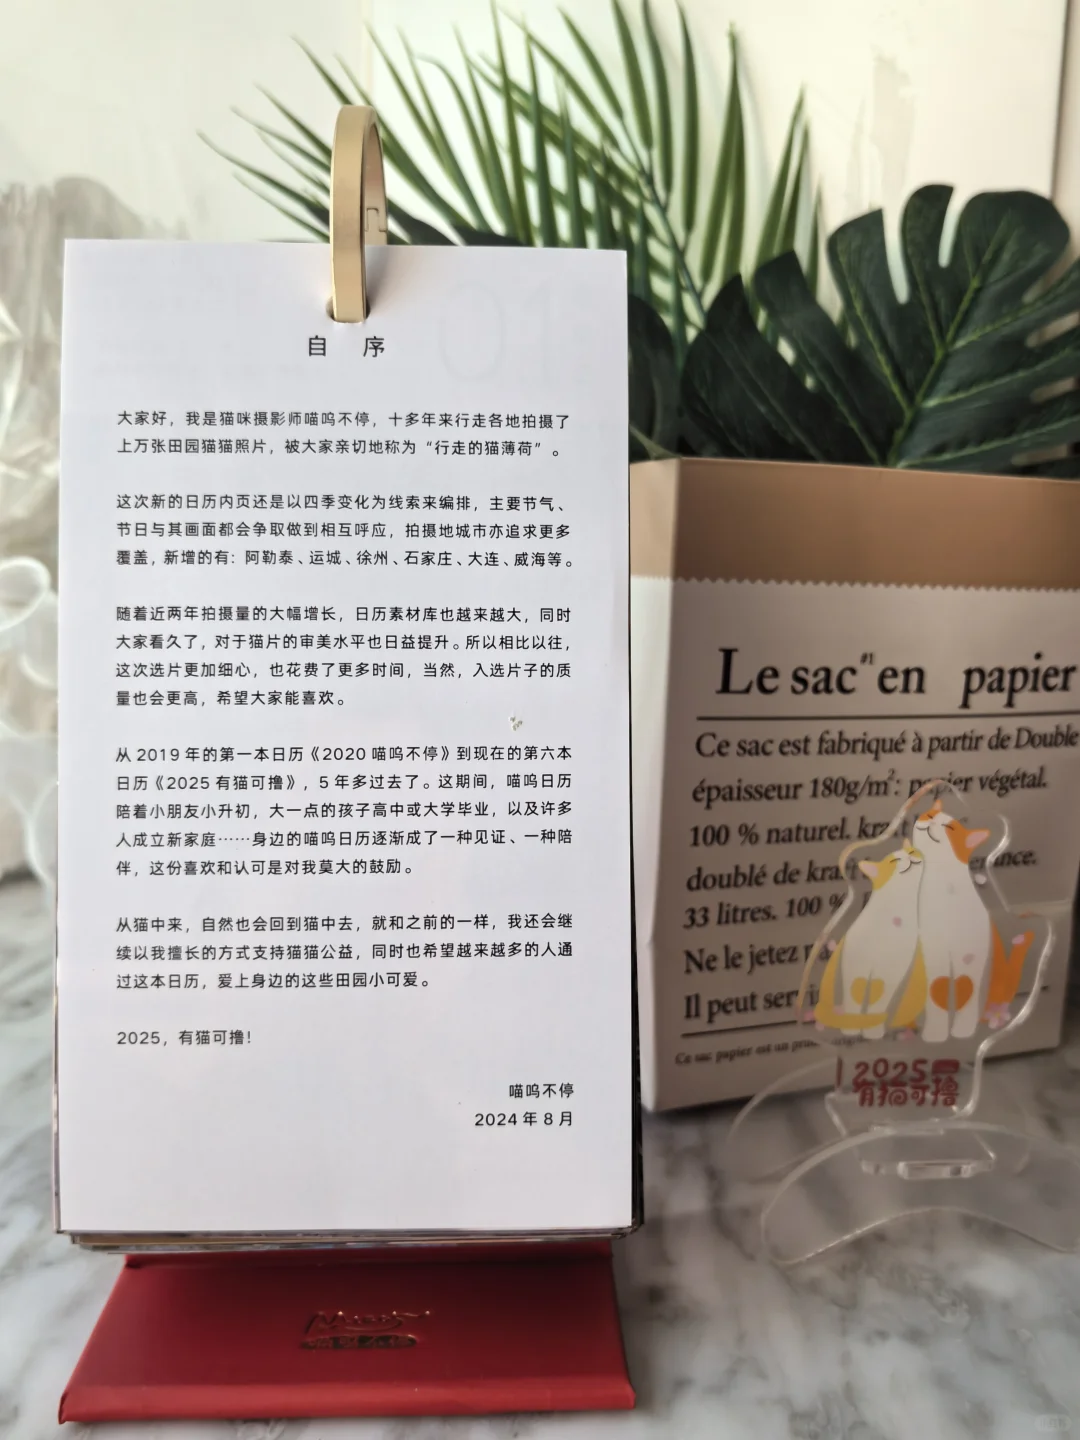 自 序
大家好，我是猫咪摄影师喵呜不停，十多年来行走各地拍摄了
上万张田园猫猫照片，被大家亲切地称为“行走的猫薄荷”。
这次新的日历内页还是以四季变化为线索来编排，主要节气、
节日与其画面都会争取做到相互呼应，拍摄地城市亦追求更多
覆盖，新增的有：阿勒泰、运城、徐州、石家庄、大连、威海等。
随着近两年拍摄量的大幅增长，日历素材库也越来越大，同时
大家看久了，对于猫片的审美水平也日益提升。所以相比以往，
这次选片更加细心，也花费了更多时间，当然，入选片子的质
量也会更高，希望大家能喜欢。
从 2019 年的第一本日历《2020 喵呜不停》到现在的第六本
日历《2025 有猫可撸》，5 年多过去了。这期间，喵呜日历
陪着小朋友小升初，大一点的孩子高中或大学毕业，以及许多
人成立新家庭……身边的喵呜日历逐渐成了一种见证、一种陪
伴，这份喜欢和认可是对我莫大的鼓励。
从猫中来，自然也会回到猫中去，就和之前的一样，我还会继
续以我擅长的方式支持猫猫公益，同时也希望越来越多的人通
过这本日历，爱上身边的这些田园小可爱。
2025，有猫可撸！
喵呜不停
2024 年 8 月
Le sac #1 en papier
Ce sac est fabriqué à partir de Double
épaisseur 180g/m²: papier végétal.
100 % naturel. kraft
doublé de kra
33 litres. 100 %
Ne le jetez
Il peut servi
Ce sac papier est un
2025
有猫可撸